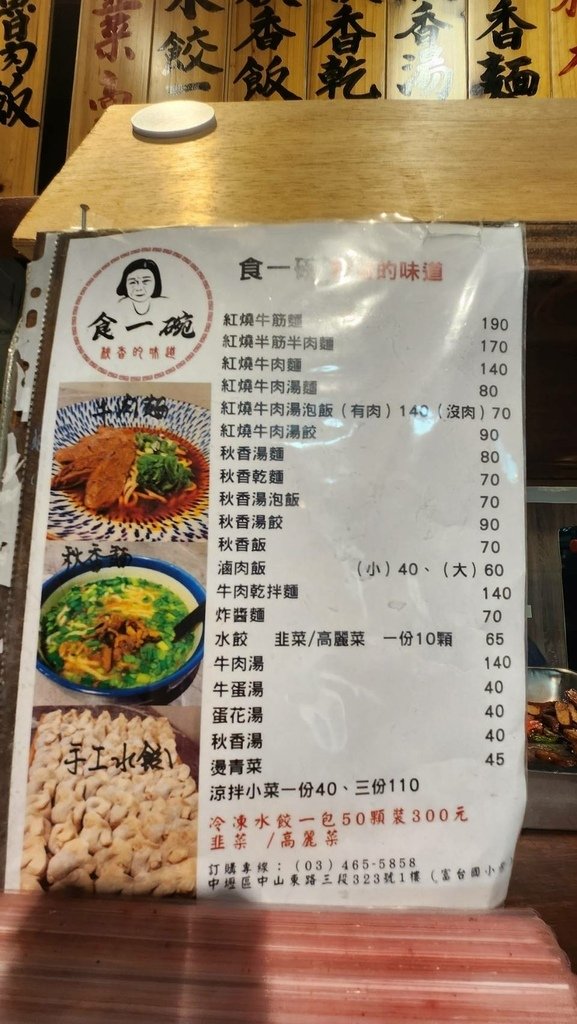 魯肉飯
韭菜
水餃
秋香飯
秋香乾
香湯
香麵
食一碗
秋香的味道
食一碗 的味道
紅燒牛筋麵 190
紅燒半筋半肉麵 170
紅燒牛肉麵 140
紅燒牛肉湯麵 80
紅燒牛肉湯泡飯（有肉）140（沒肉）70
紅燒牛肉湯餃 90
秋香湯麵 80
秋香乾麵 70
秋香湯泡飯 70
秋香湯餃 90
秋香飯 70
滷肉飯 （小）40、（大）60
牛肉乾拌麵 140
炸醬麵 70
水餃 韭菜/高麗菜 一份10顆 65
牛肉湯 140
牛蛋湯 40
蛋花湯 40
秋香湯 40
燙青菜 45
涼拌小菜一份40、三份110
冷凍水餃一包50顆裝300元
韭菜 /高麗菜
訂購專線：（03）465-5858
中壢區中山東路三段323號1樓（富台國小
牛肉麵
秋香麵
手工水餃